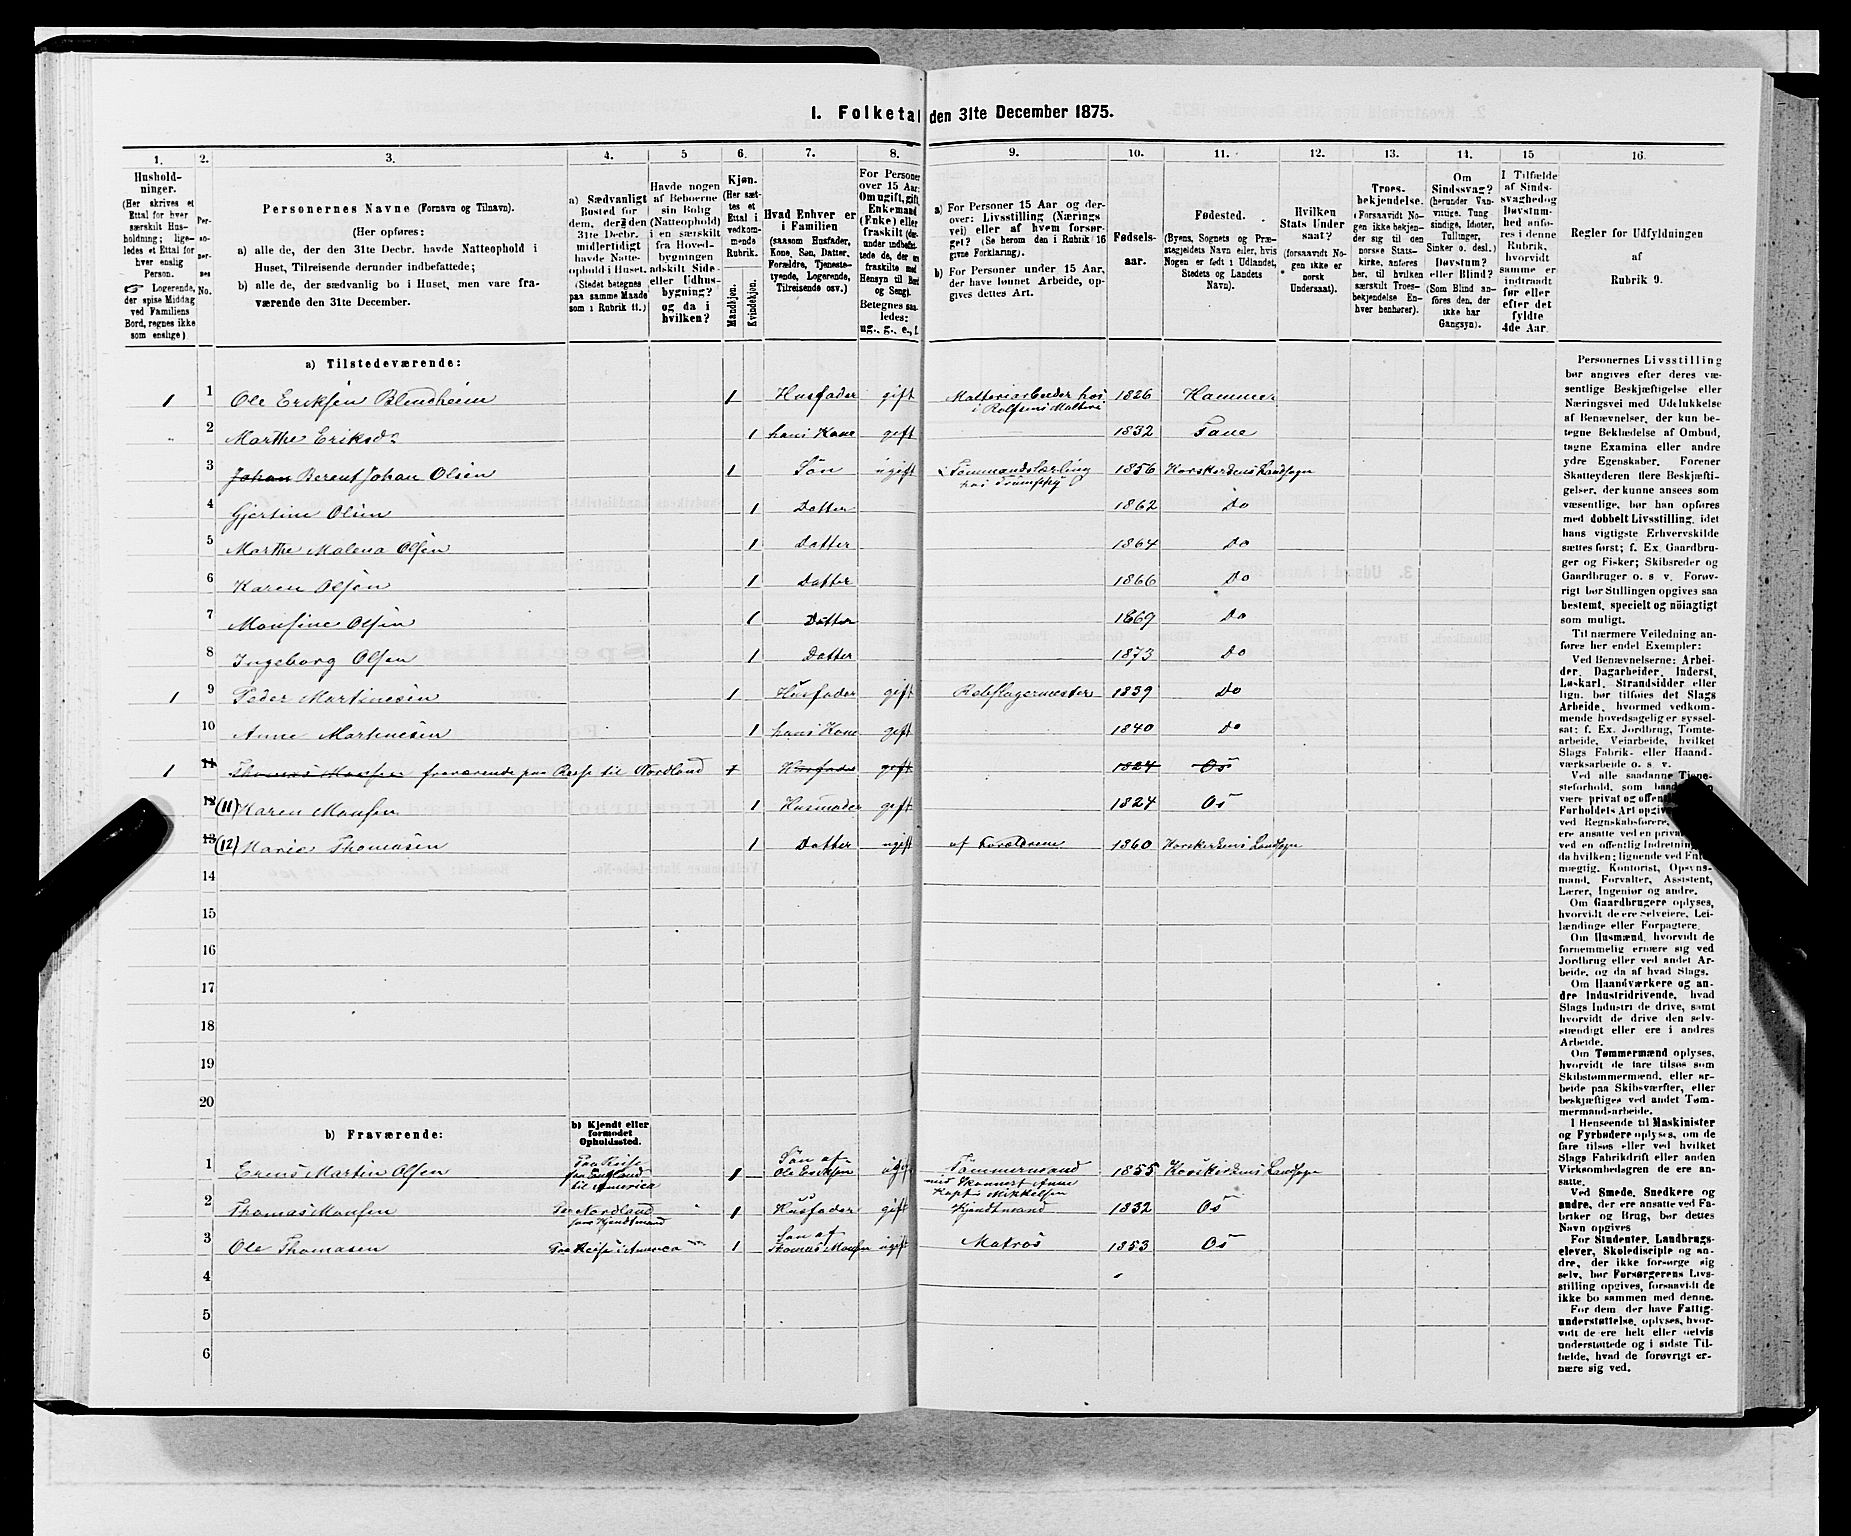 1. Folketal den 31te December 1875.
1. 2. 3. 4. 5 6. 7. 8. 9. 10. 11. 12. 13. 14. 15 16.
Hushold-
ninger.
(Her skrives et
Ettal for hver
særskilt Hus-
holdning; lige-
ledes et Ettal for
hver enslig
Person.
☞ Logerende,
der spise Middag
ved Familiens
Bord, regnes ikke
som enslige.)
Per-
so-
ner-
nes
No.
Personernes Navne (Fornavn og Tilnavn).
(Her opføres:
a) alle de, der den 31te Decbr. havde Natteophold i
Huset, Tilreisende derunder indbefattede;
b) alle de, der sædvanlig bo i Huset, men vare fra-
værende den 31te December.
a) Sædvanligt
Bosted for
dem, der den
31te Decbr.
midlertidigt
havde Natte-
ophold i Huset.
(Stedet betegnes
paa samme Maade
som i Rubrik 11.)
Havde nogen
af Beboerne
sin Bolig
(Natteophold)
i en særskilt
fra Hoved-
bygningen
adskilt Side-
eller Udhus-
bygning?
og da i
hvilken?
Kjøn.
(Her sæt-
tes et
Ettal i
vedkom-
mende
Rubrik.
Mandkjøn.
Kvindekjøn.
Hvad Enhver er
i Familien
(saasom Husfader,
Kone, Søn, Datter,
Forældre, Tjeneste-
tyende, Logerende,
Tilreisende osv.)
For Personer
over 15 Aar:
Om ugift, gift,
Enkemand
(Enke) eller
fraskilt (der-
under indbefat-
tede de, der ere
fraskilte med
Hensyn til Bord
og Seng).
Betegnes saa-
ledes:
ug., g., e., f.
a) For Personer 15 Aar og der-
over: Livsstilling (Nærings
vei) eller af hvem forsør-
get? (Se herom den i Rubrik 16
givne Forklaring).
b) For Personer under 15 Aar,
der have lønnet Arbeide, op-
gives dettes Art.
Fødsels-
aar.
Fødested.
(Byens, Sognets og Præ-
stegjeldets Navn eller, hvis
Nogen er født i Udlandet,
Stedets og Landets
Navn).
Hvilken
Stats Under
saat?
(forsaavidt No-
gen ikke er
norsk
Undersaat).
Troes-
bekjendelse.
(Forsaavidt No-
gen ikke bekjen-
der sig til den
norske Stats-
kirke, anføres
her, til hvilken
særskilt Troes-
bekjendelse En-
hver henhører).
Om
Sindssvag?
(herunder Van-
vittige, Tung
sindige, Idioter,
Tullinger,
Sinker o. desl.)
Døvstum?
eller Blind? (
Som Blind an-
føres den, der
ikke har
Gangsyn).
I Tilfælde
af Sinds-
svaghed og
Døvstum-
hed anfø-
res i denne
Rubrik,
hvorvidt
samme er
indtraadt
før eller
efter det
fyldte
4de Aar.
Regler for Udfyldningen
af
Rubrik 9.
a) Tilstedeværende:
1 1 Ole Eriksen Blindheim 1 Husfader gift Malteriarbeider hos 1826 Hammer
i Rolfsens Malteri
2 Marthe Eriksd: 1 hans Kone gift 1832 Fane
3 Johan Berent Johan Olsen 1 Søn ugift Tømmandslærling 1856 Korskirkens Landsogn
hos Trumpÿ
4 Gjertine Olsen 1 Datter 1862 Do
5 Marthe Malena Olsen 1 Datter 1864 Do
6 Karen Olsen 1 Datter 1866 Do
7 Monsine Olsen 1 Datter 1869 Do
8 Ingeborg Olsen 1 Datter 1873 Do
1 9 Peder Martinesen 1 Husfader gift Rebslagermester 1839 Do
10 Anne Martinesen 1 hans Kone gift 1840 Do
1 11 Thomas Monsen fraværende paa Reise til Nordland 1 Husfader gift 1824 Os
12 (11) Karen Monsen 1 Husmoder gift 1824 Os
13 (12) Marie Thomasen 1 Datter ugift af Forældrene 1860 Korskirkens Landsogn
14
15
16
17
18
19
20
b) Fraværende:
b) Kjendt eller
formodet
Opholdssted.
1 Erens Martin Olsen Paa Reise fra England til America 1 Søn af Ole Eriksen ugift Tømmermand med Skonnert Anne Kapt. Mikkelsen 1855 Korskirkens Landsogn
2 Thomas Monsen Nordland som Kjendtmand 1 Husfader gift Kjendtmand 1832 Os
3 Ole Thomasen Paa Reise i America 1 Søn af Thomas Monsen ugift Matros 1853 Os
4
5
6
Personernes Livsstilling
bør angives efter deres væ-
sentlige Beskjæftigelse eller
Næringsvei med Udelukkelse
af Benævnelser, der kun be-
tegne Beklædelse af Ombud,
tagne Examina eller andre
ydre Egenskaber. Forener
Skatteyderen flere Beskjæfti-
gelser, der kunne ansees som
væsentlige, bør han opføres
med dobbelt Livsstilling, idet
hans vigtigste Erhvervskilde
sættes først; f. Ex. Gaardbru-
ger og Fisker; Skibsreder og
Gaardbruger o. s. v. Forøv-
rigt bør Stillingen opgives saa
bestemt, specielt og nöiagtigt
som muligt.
Til nærmere Veiledning an-
føres her endel Exempler:
Ved Benævnelserne: Arbei-
der, Dagarbeider, Inderst,
Løskarl, Strandsidder eller
lign. bør tilføies det Slags
Arbeide, hvormed vedkom-
mende hovedsagelig er syssel-
sat: f. Ex. Jordbrug, Tomte-
arbeide, Veiarbeide, hvilket
Slags Fabrik- eller Haand-
værksarbeide o. s. v.
Ved alle saadanne Tjene-
steforhold, som
være privat og offent
Forholdets Art opgiv
ved Regnskabsførere,
ere ansatte ved en priva
ved en offentlig Indretning
da hvilken; lignende ved Ful-
mægtig, Kontorist, Opsyns-
mand, Forvalter, Assistent,
Lærer, Ingeniør og andre.
Om Gaardbrugere oplyses,
hvorvidt de ere Selveiere, Lei-
lændinge eller Forpagtere.
Om Husmænd, hvorvidt de
fornemmelig ernære sig ved
Jordbrug eller ved andet Ar-
beide, og da af hvad Slags.
Om Haandværkere og an-
dre Industridrivende, hvad
Slags Industri de drive, samt
hvorvidt de drive den selv-
stændigt eller ere i andres
Arbeide.
Om Tømmermænd oplyses,
hvorvidt de fare tilsøs som
Skibstømmermænd, eller ar-
beide paa Skibsværfter, eller
beskjæftiges ved andet Tøm-
mermandsarbeide.
I Henseende til Maskinister
og Fyrbødere oplyses, om de
fare tilsøs eller ved hvilket
Slags Fabrikdrift eller anden
Virksomhedsgren de ere an-
satte.
Ved Smede, Snedkere og
andre, der ere ansatte ved Fa-
briker og Brug, bør dettes
Navn opgives
For Studenter, Landbrugs-
elever, Skoledisciple og an-
dre, der ikke forsørge sig
selv, bør Forsørgerens Livs-
stilling opgives, forsaavidt de
ikke bo sammen med denne.
For dem, der have Fattig-
understøttelse, oplyses, hvor-
vidt de ere helt eller delvis
understøttede og i sidste Til-
fælde, hvad de forøvrigt er-
nære sig ved.